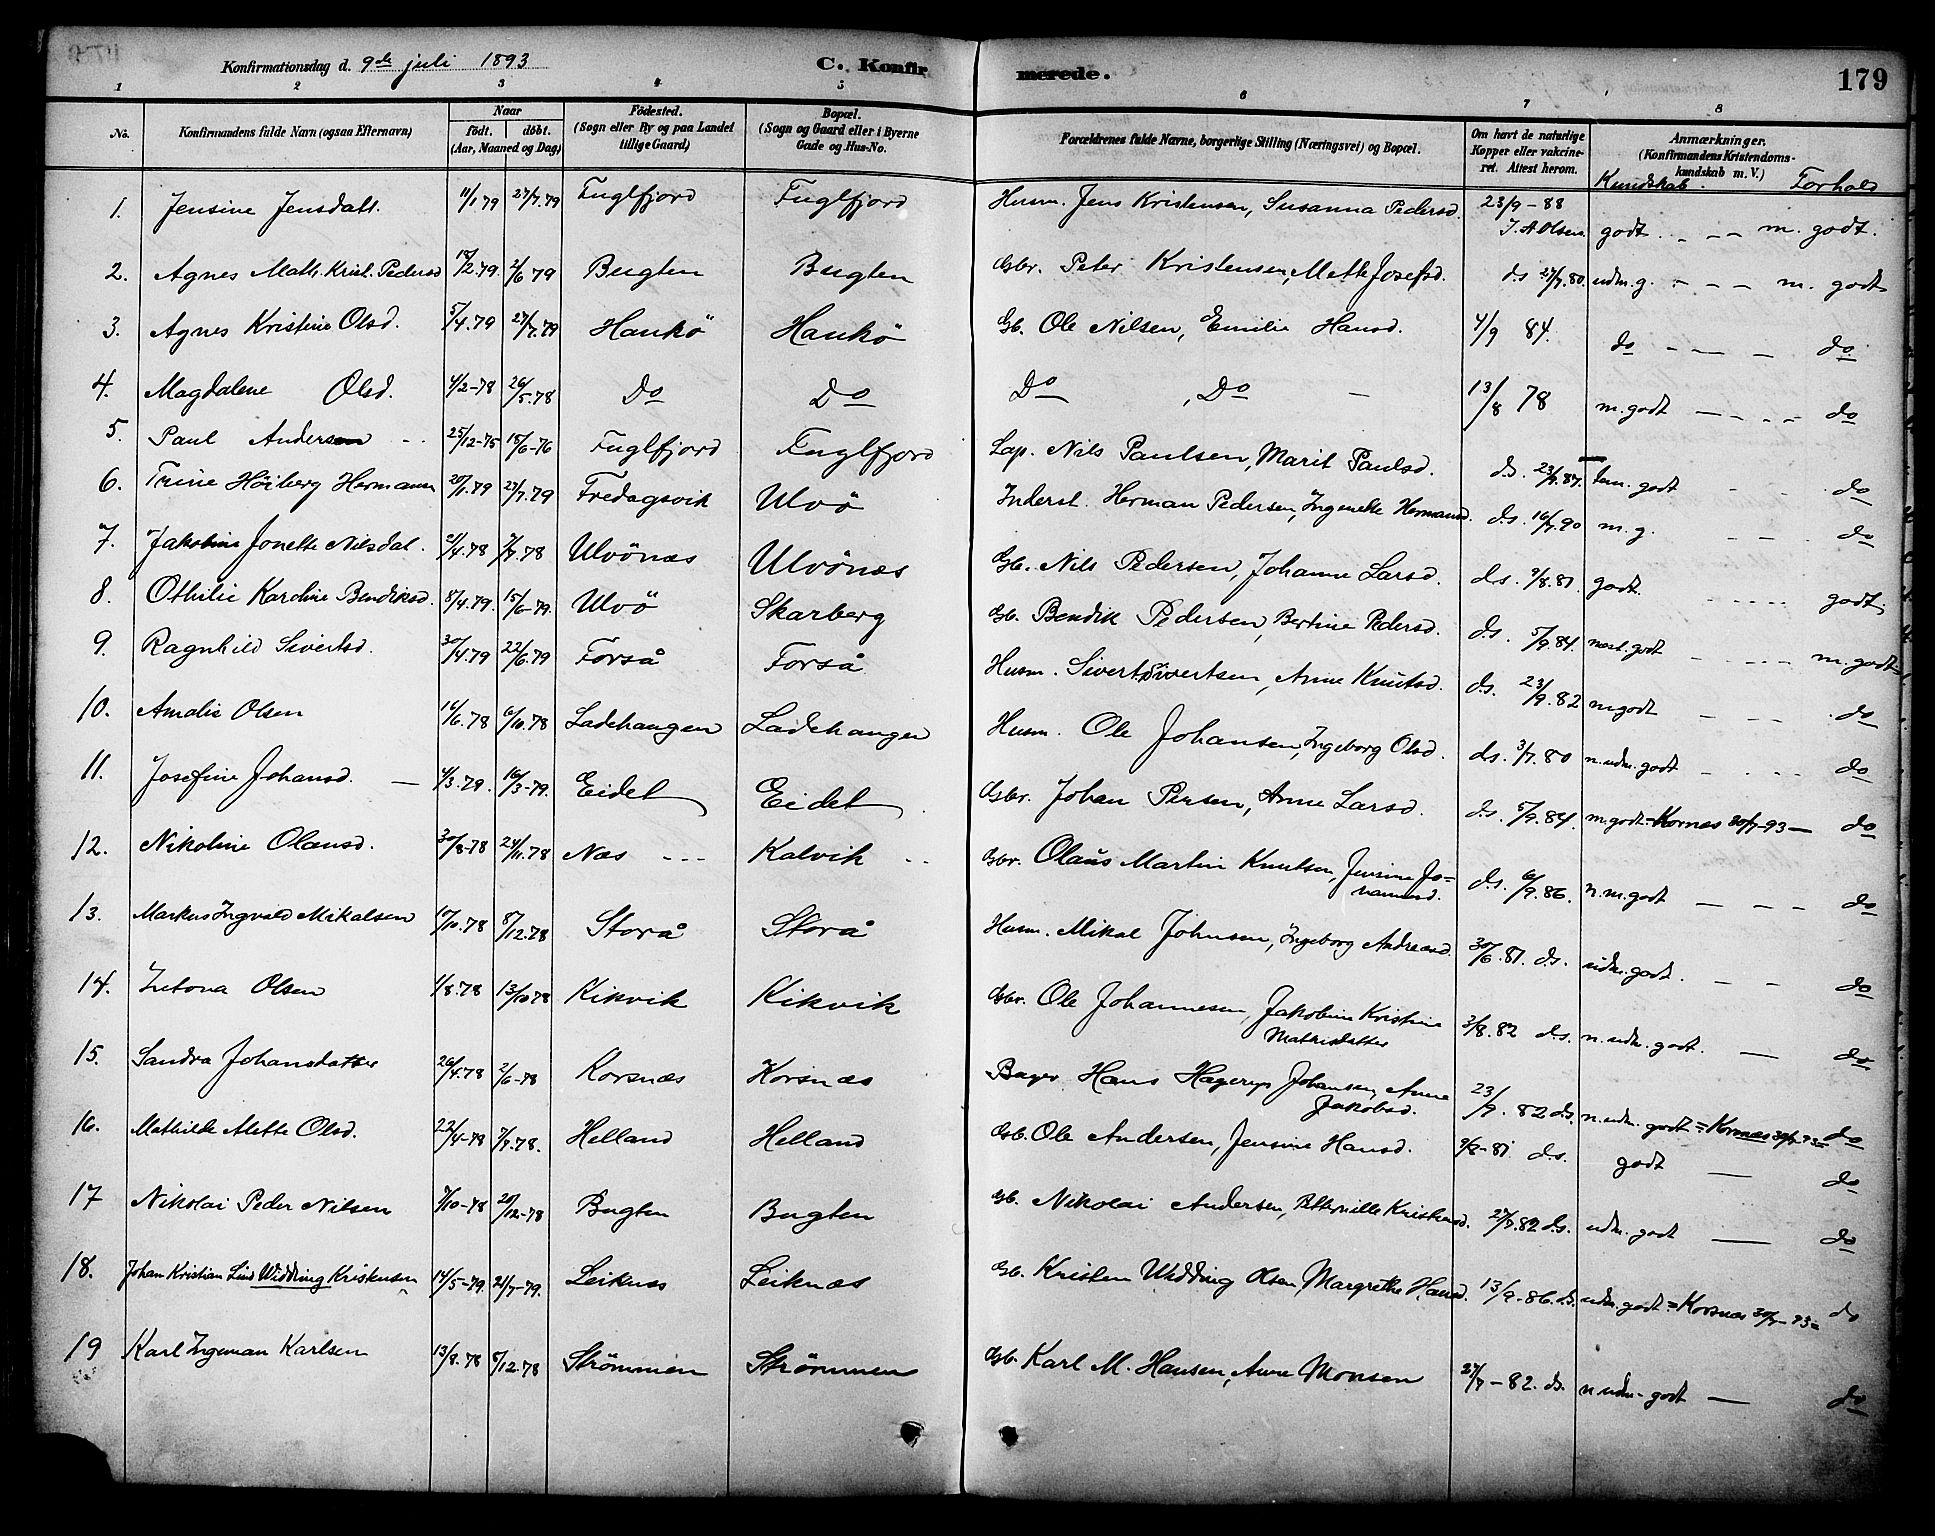 Konfirmationsdag d. 9de juli 1893 C. Konfirmerede. 179
1 2 3 4 5 6 7 8
No. Konfirmandens fulde Navn (ogsaa Efternavn) Naar födt. döbt. (Aar, Maaned og Dag) Födested. (Sogn eller By og paa Landet tillige Gaard) Bopæl. (Sogn og Gaard eller i Byerne Gade og Hus-No. Forældrenes fulde Navne, borgerlige Stilling (Næringsvei) og Bopæl. Om havt de naturlige Kopper eller vakcineret. Attest herom. Anmærkninger. (Konfirmandens Kristendomskundskab m. V.) Kundskab. Forhold
1. Jensine Jensdatt. 11/1 79 27/7.79 Fuglfjord Fuglfjord Husm. Jens Kristensen, Susanna Pedersd. 23/9-88 J.A Olsen godt - - - m. godt.
2. Agnes Math. Krist. Pedersd 18/2.79 2/6 79 Bugten Bugten Gbr. Peter Kristensen, Mette Josefsd. ds 27/7.80. udm.g. - - - m. godt
3. Agnes Kristine Olsd. 5/4.79 27/7.79 Haukö Haukö Gb. Ole Nilsen, Emilie Hansd. 4/9 84. do - - - do
4. Magdalene Olsd. 4/2-78 26/5.78 Do Do Do , Do - 13/8 78 m.godt - - - do
5. Paul Andersen 25/12-75 18/6-76 Fuglfjord Fuglfjord Lap. Nils Paulsen, Marit Paulsd. ds. 23/9.87. tem. godt - - do
6. Trine Höiberg Hermansen 20/1.79 27/7.79 Fredagsvik Ulvö Inderst. Herman Pedersen, Ingenette Hermansd. ds. 16/7.90 m.g. - - do
7. Jakobine Jonette Nilsdat. 21/4.78 7/7.78 Ulvönæs Ulvönæs Gb. Nils Pedersen, Johanne Larsd. ds. 9/8.81. godt. - - - godt.
8. Othilie Karoline Bendiksd. 8/4.79. 15/6-79. Ulvö Skarberg Gb. Bendik Pedersen, Bertine Pedersd. ds. 5/9.84. mest.godt - - - m. godt
9. Ragnhild Sivertsd. 30/4.79 22/6.79 Forså Forså Husm. Sivert Sivertsen, Anne Knutsd. ds. 23/9.82 m.godt - - - do
10. Amalie Olsen 16/6.78 6/10.78 Ladehaugen Ladehaugen Husm. Ole Johansen, Ingeborg Olsd. ds. 3/7.80 n.udm.godt - - - do
11. Josefine Johansd. - 4/3.79. 16/3-79. Eidet Eidet Gbr. Johan Persen, Anne Larsd. ds. 5/9.84. m.godt = Kornæs 30/7-93 - do
12. Nikoline Olausd. 30/8-78 24/11.78 Næs - - - Kalvik - - Gbr. Olaus Martin Knutsen, Jensine Jovannesd. ds. 6/9.86. n.m.godt - - - do
13. Markus Ingvald Mikalsen 10/10.78 8/12.78 Storå Storå Husm. Mikal Johnsen, Ingeborg Andreasd. 30/6.81. ds. udm.godt. - - do
14. Olsen 1/8.78 13/10 78 Kikvik Kikvik Gbr. Ole Johannesen, Jakobine Kristine Mathisdatter 3/8.82 ds. n.udm.godt. - do
15. Sandra Johansdatter 26/4.78 2/6-78 Korsnæs Korsnæs Bager Hans Hagerup Johansen, Anne Jakobsd. 23/9.82 ds. n.udm. godt = Kornæs 30/7-93 = do
16. Mathilde Alette Olsd. 22/4-78 7/7.78. Helland Helland Gb. Ole Andersen, Jensine Hansd. 9/8-81 ds. godt - do
17 Nikolai Peder Nilsen 7/10-78 20/12-78 Bugten Bugten Gb. Nikolai Andersen, Petternille Kristensd. 27/7.82 ds. udm.godt - do
18. Johan Kristian Lind Widding Kristensen 14/5-79 21/7-79. Leiknæs Leiknæs Gb. Kristen Widding Olsen, Margrethe Hansd. 13/9-86.ds. udm.godt = Korsnæs 30/7-93 = do
19 Karl Ingeman Karlsen 13/8.78 8/12.78 Strömmen Strömmen Gb. Karl M. Hansen, Anne Monsen 27/7-82.ds. n udm-godt - do